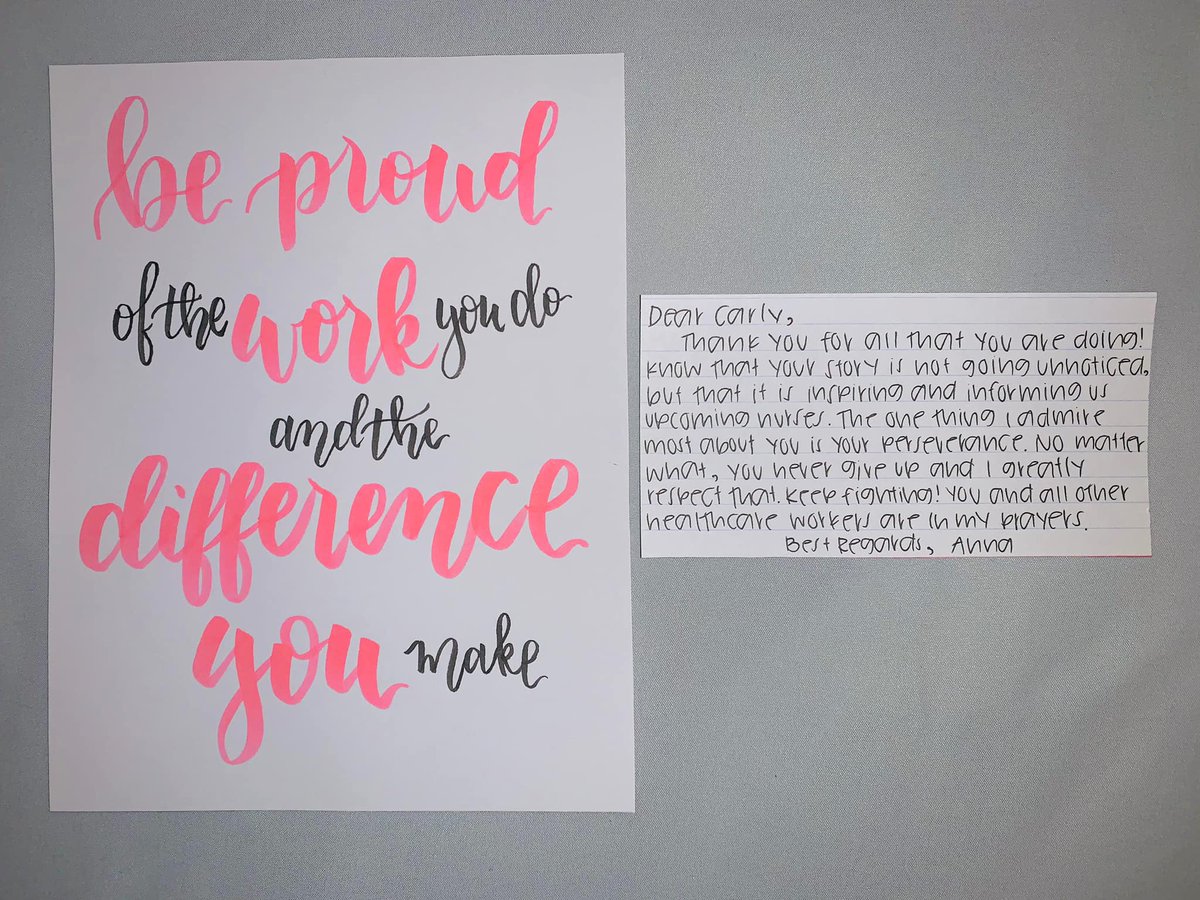 be proud
of the work you do
and the
difference
you make
Dear Carly,
Thank you for all that you are doing!
Know that your story is not going unnoticed,
but that it is inspiring and informing us
upcoming nurses. The one thing I admire
most about you is your perseverance. No matter
what, you never give up and I greatly
respect that. Keep fighting! You and all other
healthcare workers are in my prayers.
Best Regards, Anna